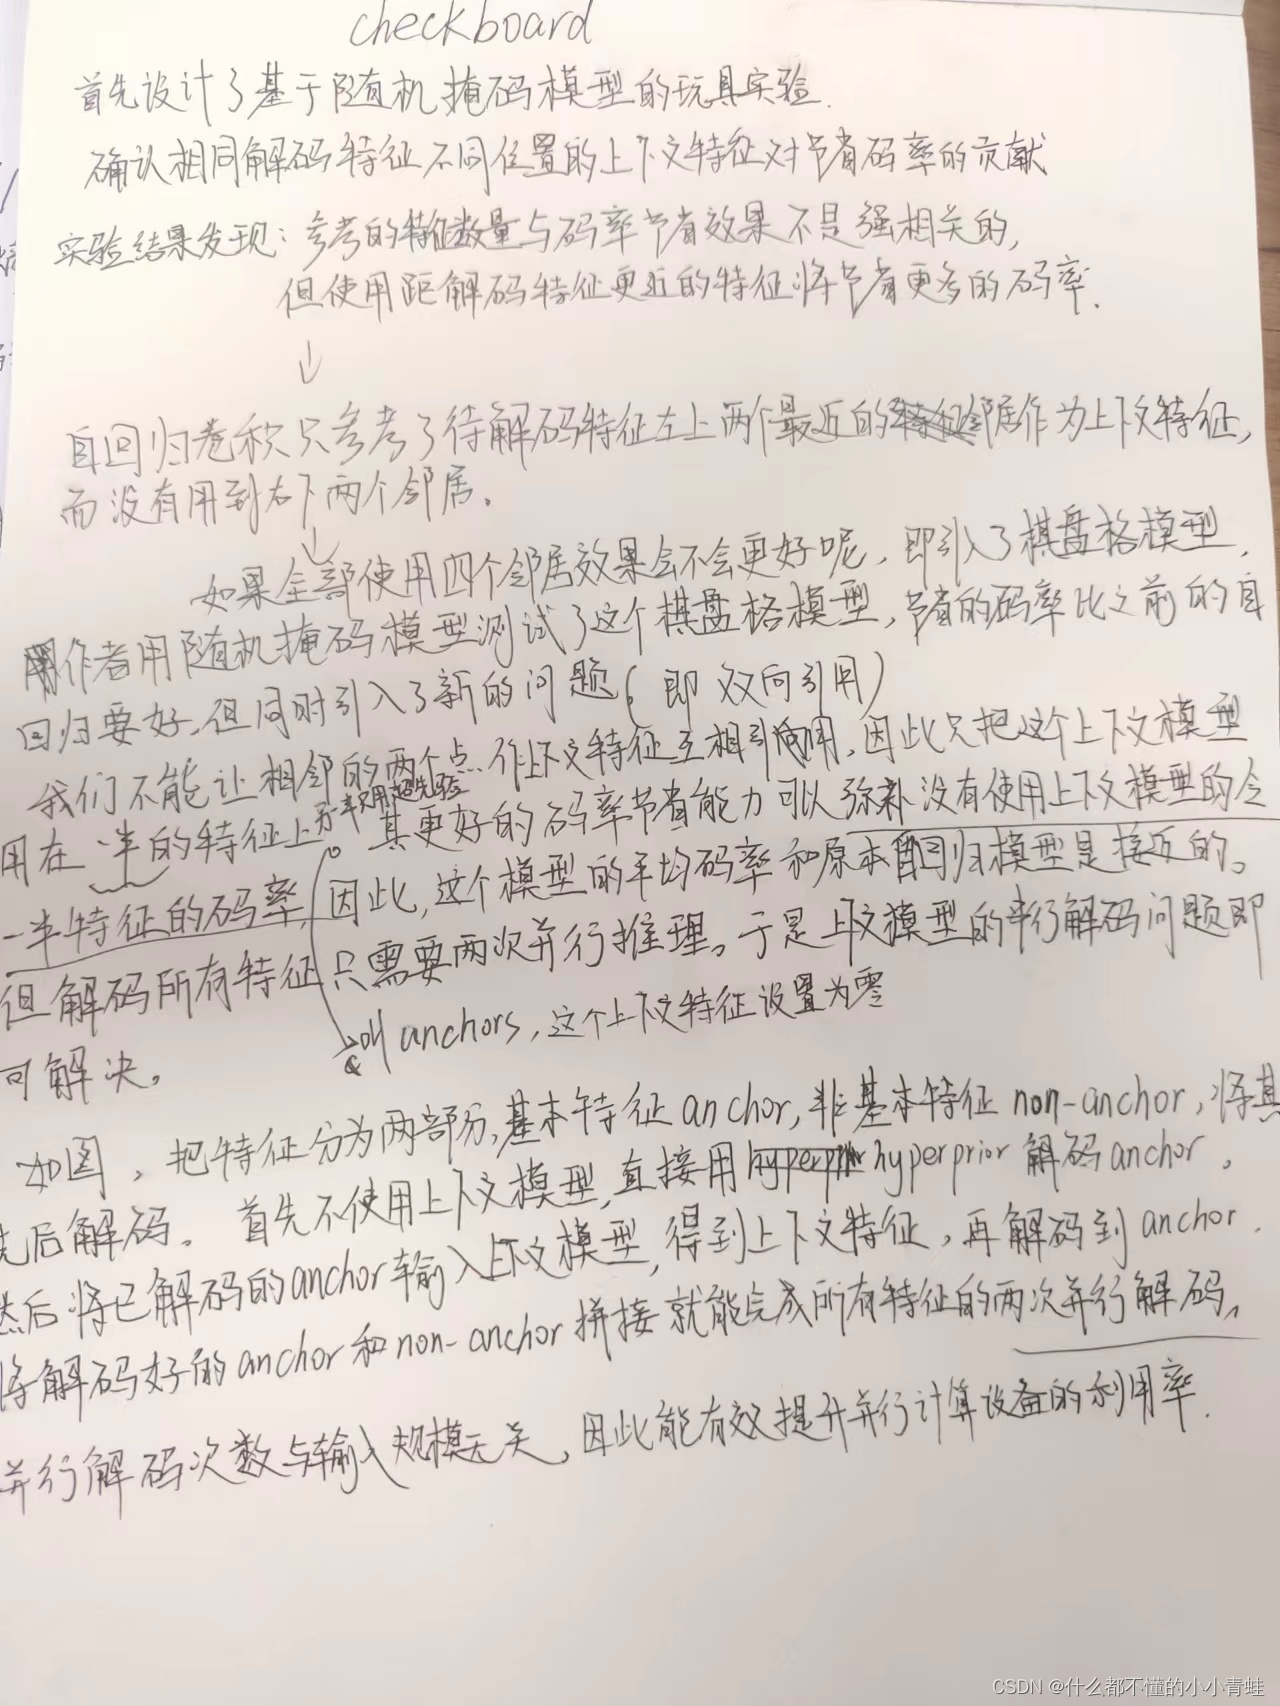 checkboard
首先设计了基于随机掩码模型的玩具实验.
确认相同解码特征不同位置的上下文特征对节省码率的贡献
实验结果发现:参考的特征数量与码率节省效果不是强相关的,
但使用距解码特征更近的特征将节省更多的码率.
↓
自回归卷积只参考了待解码特征左上两个最近的邻居作为上下文特征,
而没有用到右下两个邻居。
↓
如果全部使用四个邻居效果会不会更好呢,即引入了棋盘格模型,
作者用随机掩码模型测试了这个棋盘格模型,节省的码率比之前的自
回归要好,但同时引入了新的问题(即双向引用)
我们不能让相邻的两个点作上下文特征互相引用,因此只把这个上下文模型
另一半只用超先验
用在一半的特征上 其更好的码率节省能力可以弥补没有使用上下文模型的令
一半特征的码率,因此,这个模型的平均码率和原本自回归模型是接近的。
但解码所有特征只需要两次并行推理。于是上下文模型的串行解码问题即
可解决。
anchors,这个上下文特征设置为零
如图,把特征分为两部分,基本特征anchor,非基本特征non-anchor,将其
先后解码。首先不使用上下文模型,直接用hyperprior解码anchor。
然后将已解码的anchor输入上下文模型,得到上下文特征,再解码到anchor.
将解码好的anchor和non-anchor拼接就能完成所有特征的两次并行解码。
并行解码次数与输入规模无关,因此能有效提升并行计算设备的利用率.
CSDN @什么都不懂的小小青蛙